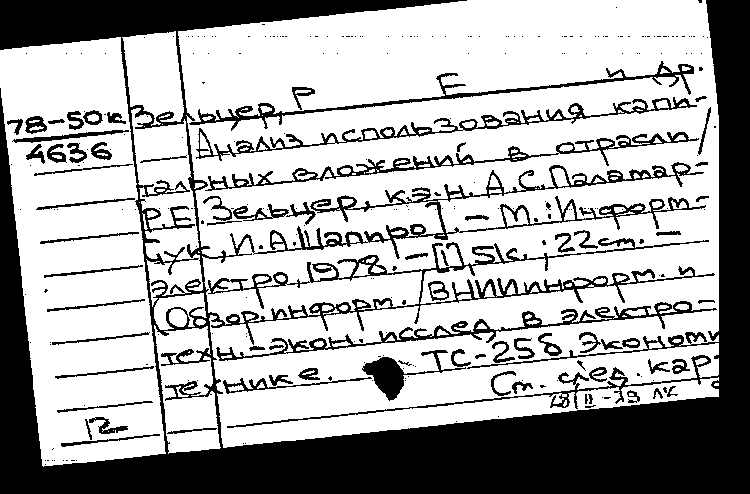 78-50к
4636
Зельцер, Р Е и др.
Анализ использования капи-
тальных вложений в отрасли/
[Р.Е. Зельцер, к.э.н. А.С. Паламар-
чук, И.А. Шапиро]. – М.: Информ-
электро, 1978. – [1], 51с.; 22см. –
(Обзор. информ. /ВНИИинформ. и
техн.-экон. исслед. в электро-
технике. ТС-258, Экономи
См. след. кар-